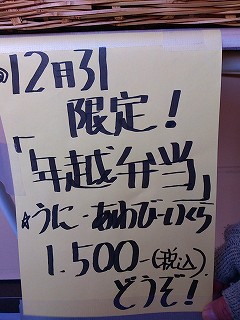 @12月31
限定!
「年越弁当」
☆うに-あわび-いくら
1.500-(税込)
どうぞ!